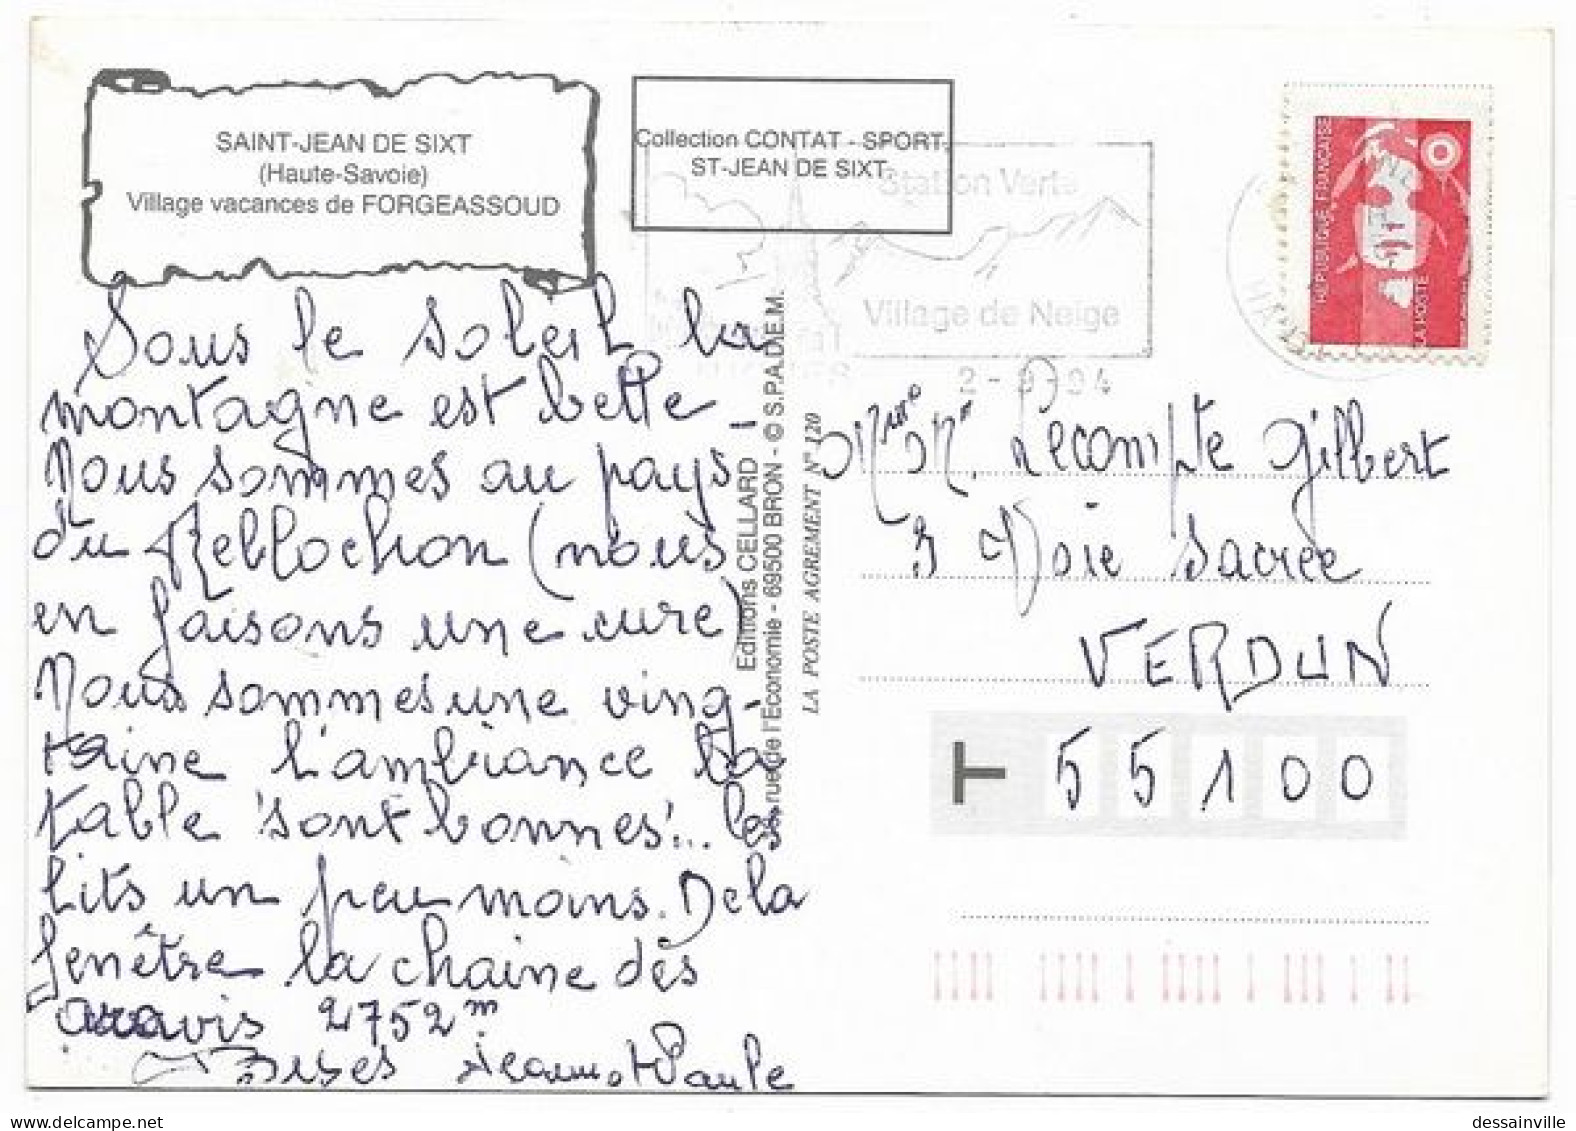 SAINT-JEAN DE SIXT
(Haute-Savoie)
Village vacances de FORGEASSOUD
Collection CONTAT - SPORT,
ST-JEAN DE SIXT.
Station Verte
Village de Neige
2 - 94
REPUBLIQUE FRANÇAISE
LA POSTE
Sous le soleil la
montagne est belle -
Nous sommes au pays
du Reblochon (nous
en faisons une cure)
Nous sommes une ving-
taine l'ambiance la
table "sont bonnes"... les
lits un peu moins. De la
fenêtre la chaine dès
aravis 2752 m
Bises Jean et Paule
Editions CELLARD -
rue de l'Economie - 69500 BRON - © S.P.A.D.E.M.
LA POSTE AGREMENT N° 120
Lecompte Gilbert
3 Voie Sacrée
VERDUN
T 55100
dessainville